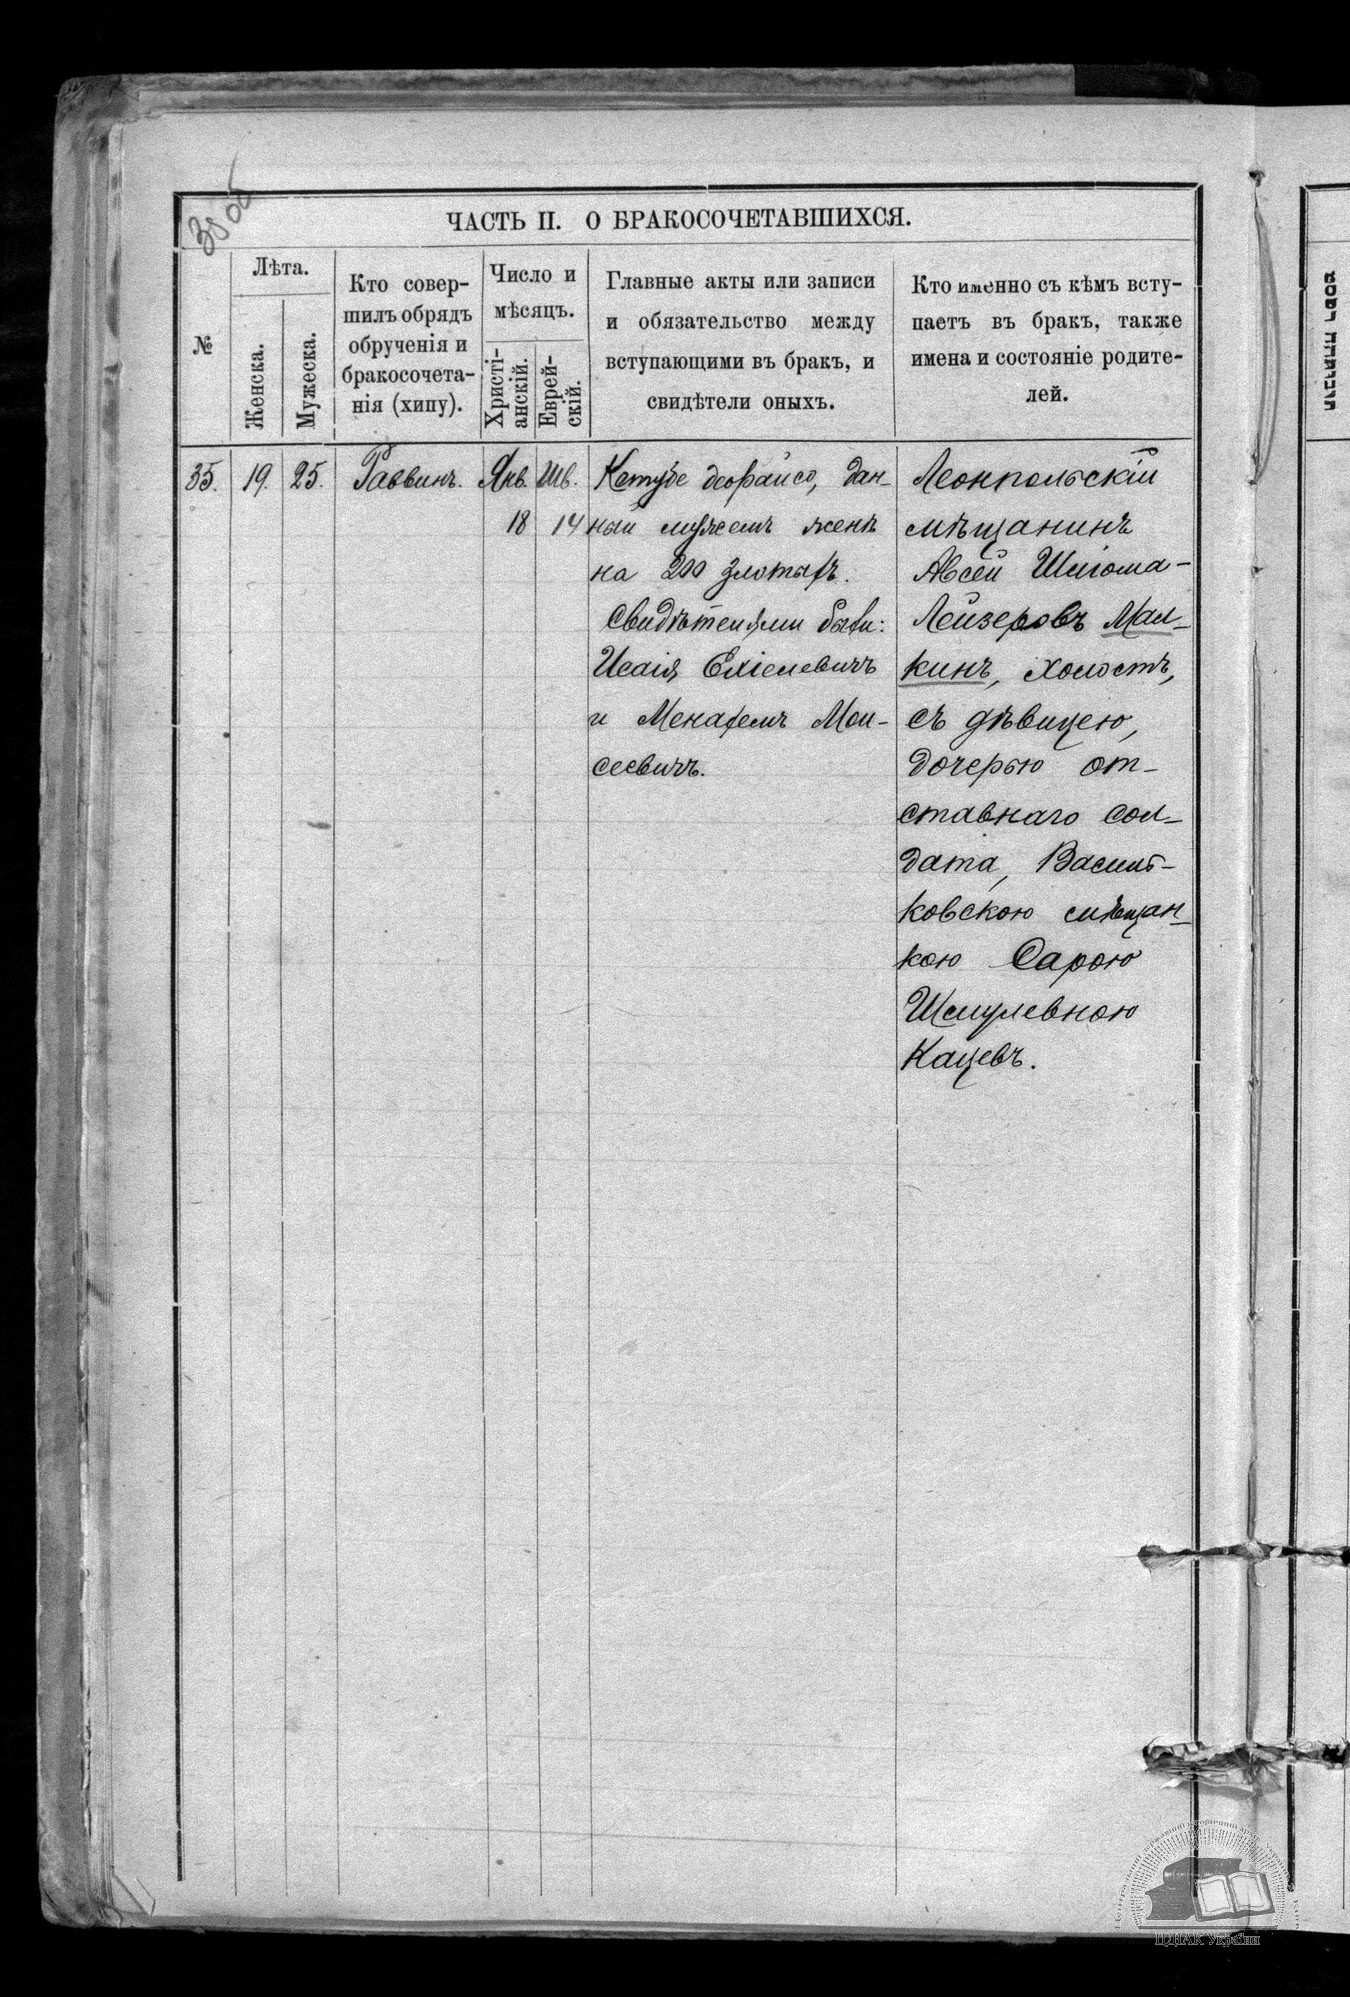 ЧАСТЬ II. О БРАКОСОЧЕТАВШИХСЯ.
№
Лѣта.
Женска.
Мужеска.
Кто совер-
шилъ обрядъ
обрученія и
бракосочета-
нія (хипу).
Число и
мѣсяцъ.
Христі-
анскій.
Еврей-
скій.
Главные акты или записи
и обязательство между
вступающими въ бракъ, и
свидѣтели оныхъ.
Кто именно съ кѣмъ всту-
паетъ въ бракъ, также
имена и состояніе родите-
лей.
35.
19.
25.
Раввинъ.
Янв.
18
Шв.
14
Кетубе деорайсо, дан-
ный мужемъ женѣ
на 200 злотыхъ.
Свидѣтелями были:
Исаія Еліелевичъ
и Менахемъ Мои-
сеевичъ.
Леонпольскій
мѣщанинъ
Авсей Шліома-
Лейзеровъ Мал-
кинъ, холостъ,
съ дѣвицею,
дочерью от-
ставнаго сол-
дата, Василь-
ковскою мѣщан-
кою Сарою
Шмулевною
Кацевъ.
ЦДІАК України